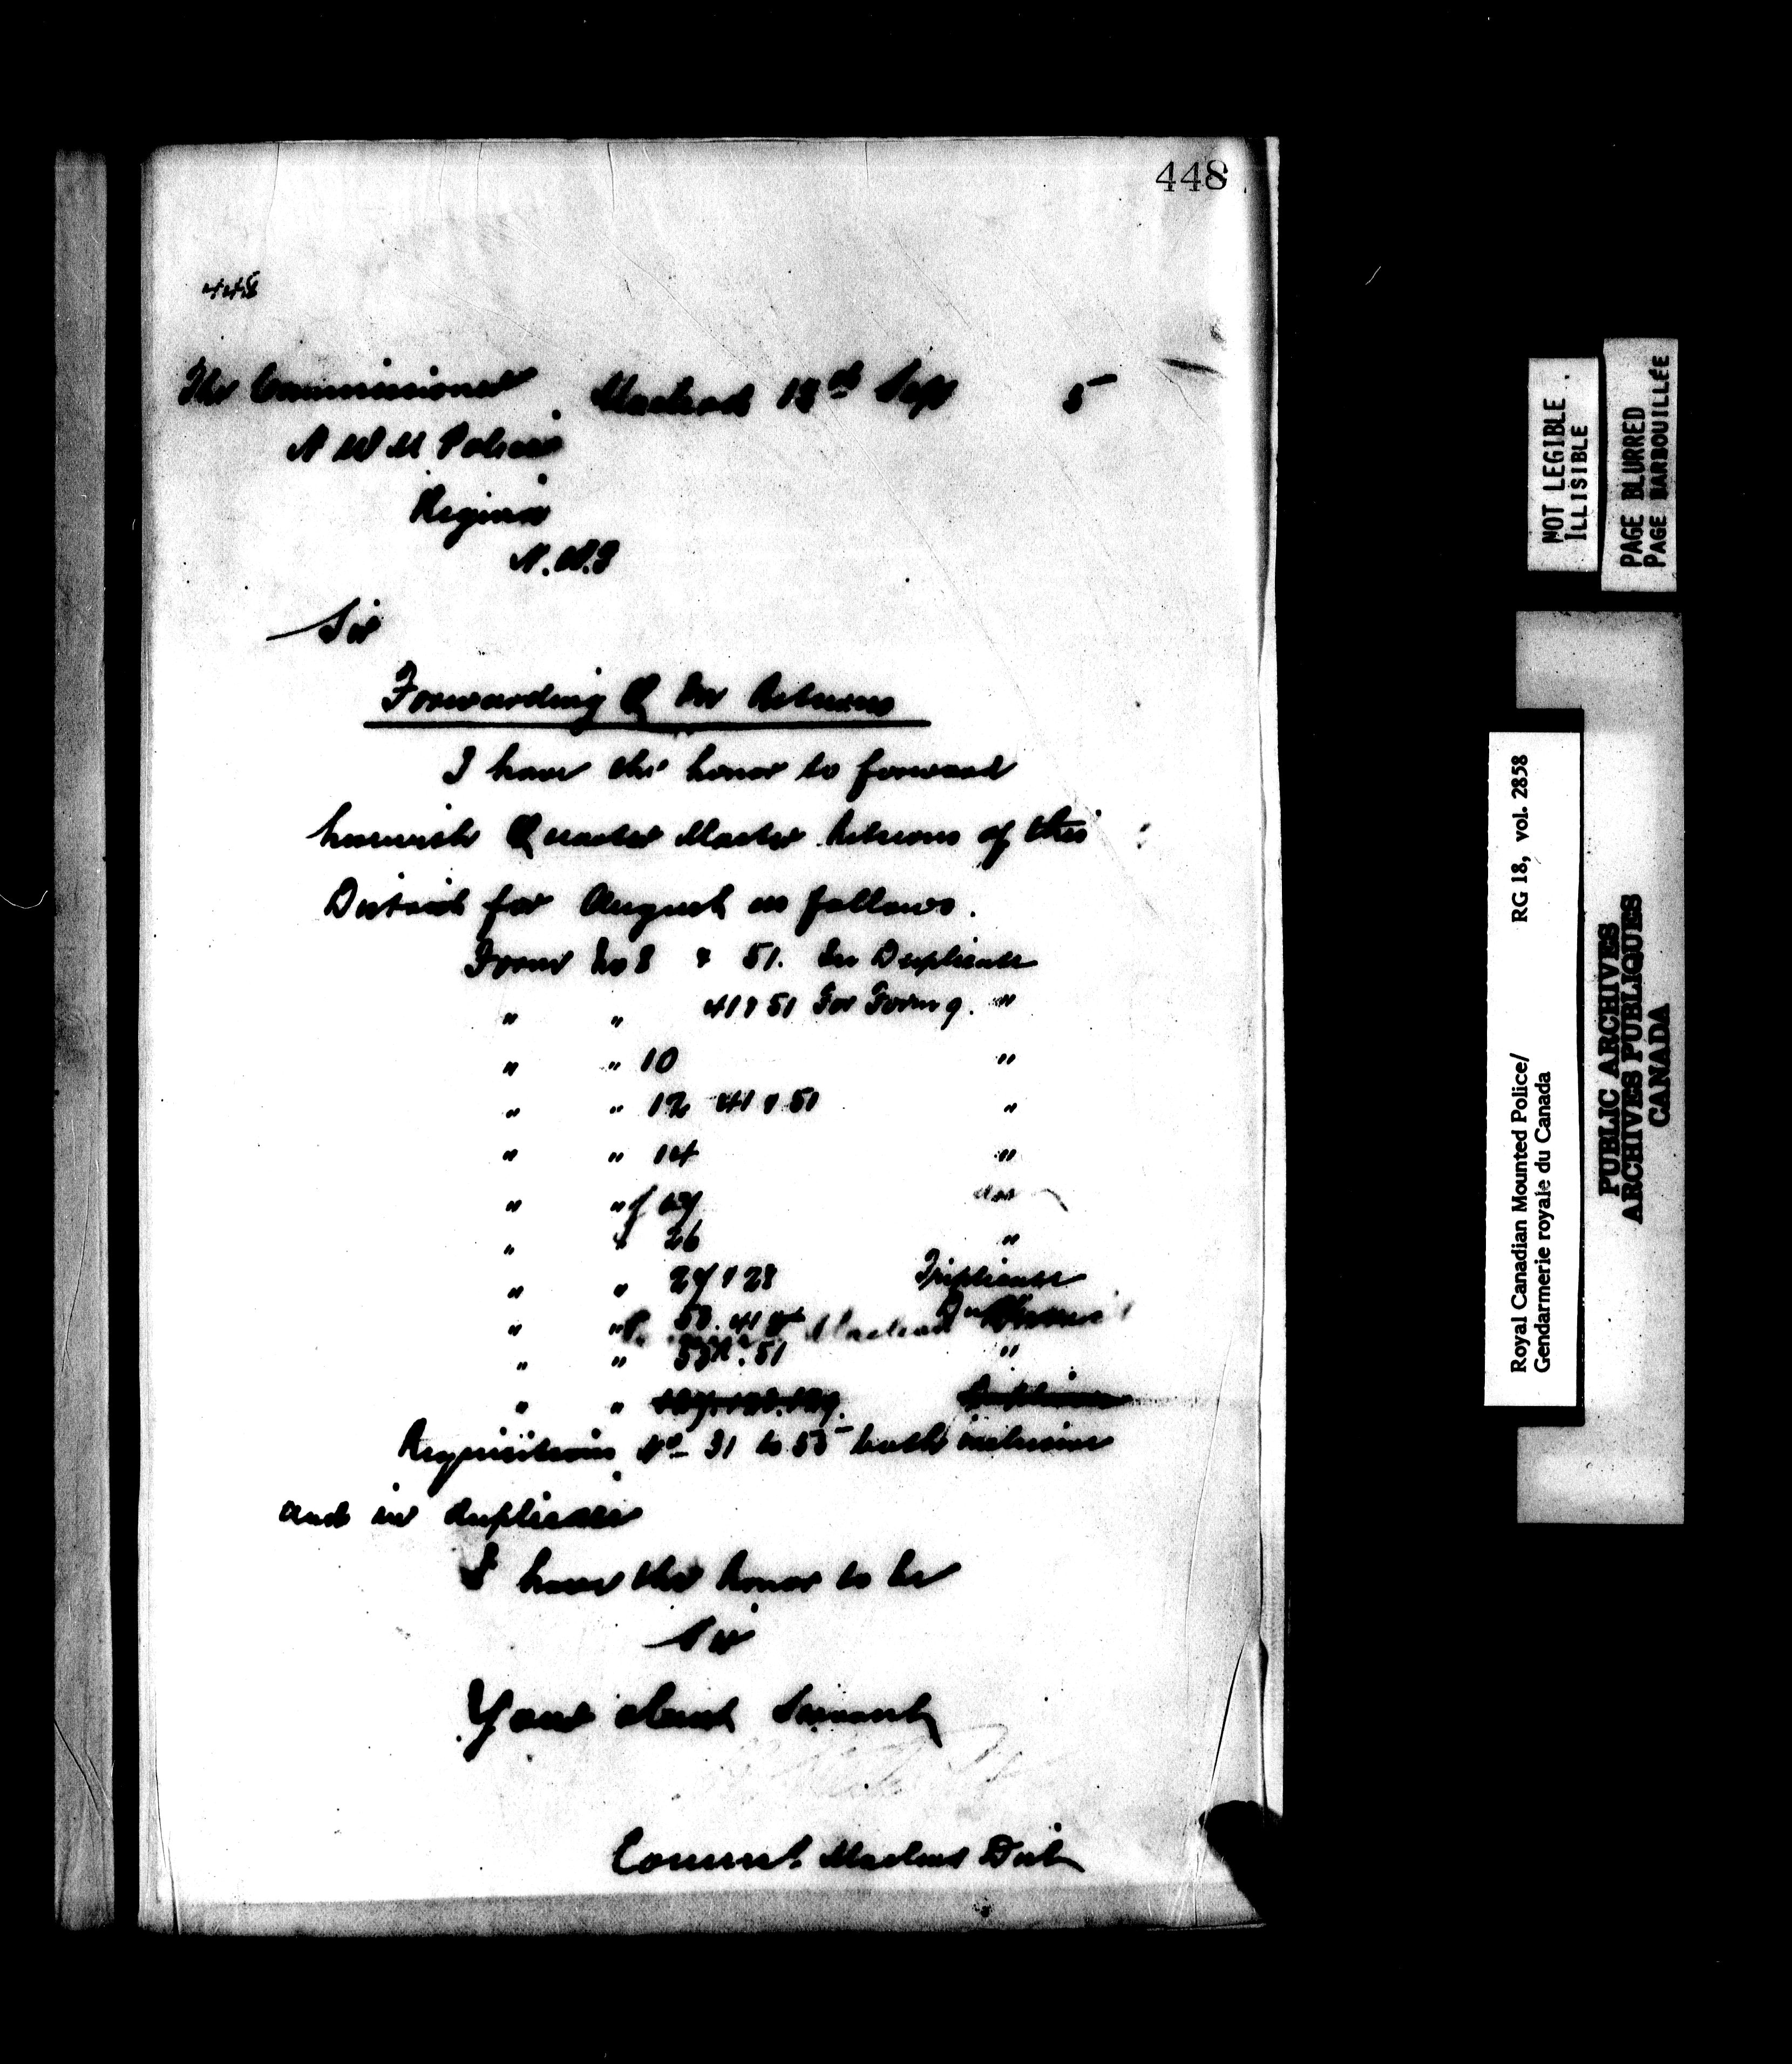 448
448
The Commissioner Macleod 13th Sept 5
N W M Police
Regina
N.W.T
Sir
Forwarding Q Mr Returns
I have the honor to forward
herewith Quarter Master Returns of this
District for August as follows.
Form No 8 & 51. In Duplicate
" " 41 & 51 For Form 9. "
" " 10 "
" " 12 41 & 51 "
" " 14 "
" "
" " 26 "
" " 27 & 28 Triplicate
" " 53. 41
" " 51 "
" "
Requisitions No 31 to 55 both inclusive
and in duplicate
I have the honor to be
Sir
Your obedt Servant
Comm. Macleod Dist
NOT LEGIBLE.
ILLISIBLE
PAGE BLURRED
PAGE BARBOUILLÉE
RG 18, vol. 2858
Royal Canadian Mounted Police/
Gendarmerie royale du Canada
PUBLIC ARCHIVES
ARCHIVES PUBLIQUES
CANADA